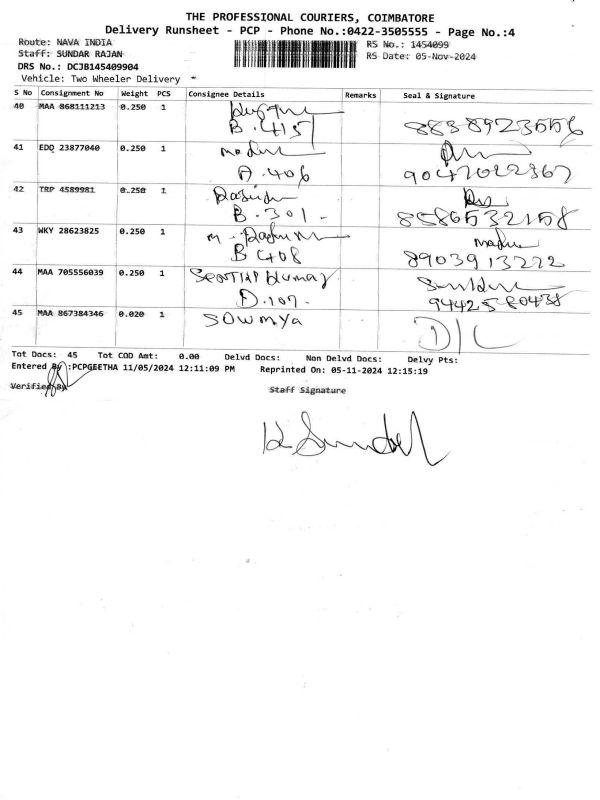 THE PROFESSIONAL COURIERS, COIMBATORE
Delivery Runsheet - PCP - Phone No.:0422-3505555 - Page No.:4
Route: NAVA INDIA RS No.: 1454099
Staff: SUNDAR RAJAN RS Date: 05-Nov-2024
DRS No.: DCJB145409904
Vehicle: Two Wheeler Delivery
S No Consignment No Weight PCS Consignee Details Remarks Seal & Signature
40 MAA 868111213 0.250 1
B. 415
41 EDQ 23877040 0.250 1
A. 406
42 TRP 4589981 0.250 1
B. 301.
43 WKY 28623825 0.250 1
B 408 8903913222
44 MAA 705556039 0.250 1
D. 107.
45 MAA 867384346 0.020 1 SOWMYA D/C
Tot Docs: 45 Tot COD Amt: 0.00 Delvd Docs: Non Delvd Docs: Delvy Pts:
Entered By :PCPGEETHA 11/05/2024 12:11:09 PM Reprinted On: 05-11-2024 12:15:19
Verified By Staff Signature